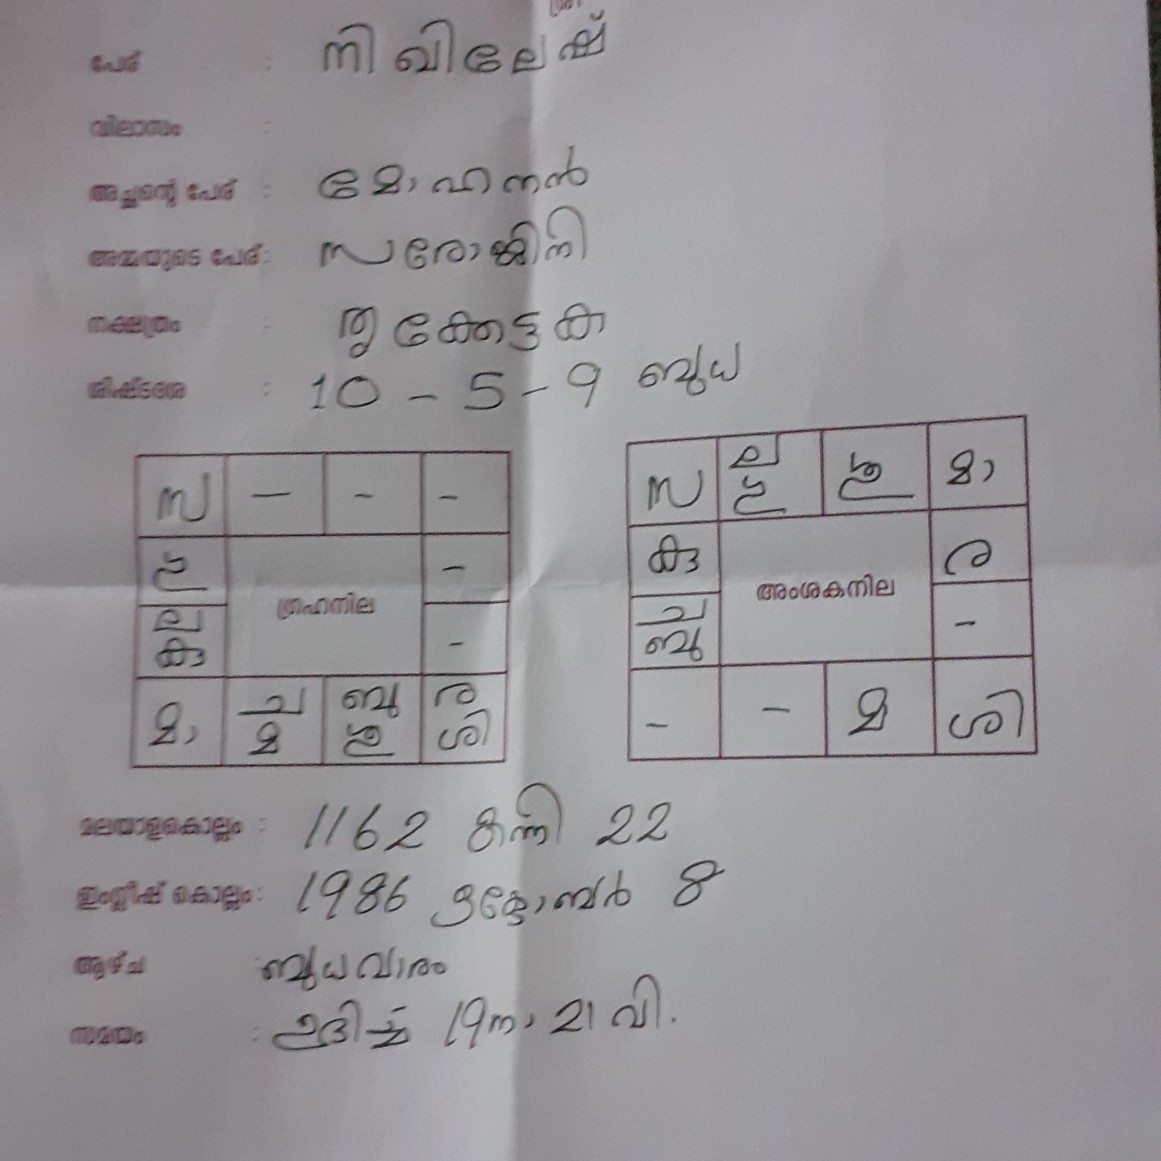 പേര് : നിഖിലേഷ്
വിലാസം :
അച്ഛന്റെ പേര് : മോഹനൻ
അമ്മയുടെ പേര് : സരോജിനി
നക്ഷത്രം : തൃക്കേട്ടക
ശിഷ്ടദശ : 10 - 5 - 9 ബുധ
സ - - -
ഗു -
ല കു -
മാ ച മ ബു ശു ര ശി
ഗ്രഹനില
സ ല ഗു ശു മാ
കു ര
ച ബു -
- - മ ശി
അംശകനില
മലയാളകൊല്ലം : 1162 കന്നി 22
ഇംഗ്ലീഷ് കൊല്ലം : 1986 ഒക്ടോബർ 8
ആഴ്ച : ബുധവാരം
സമയം : ഉദിച്ച് 19 നാ 21 വി.